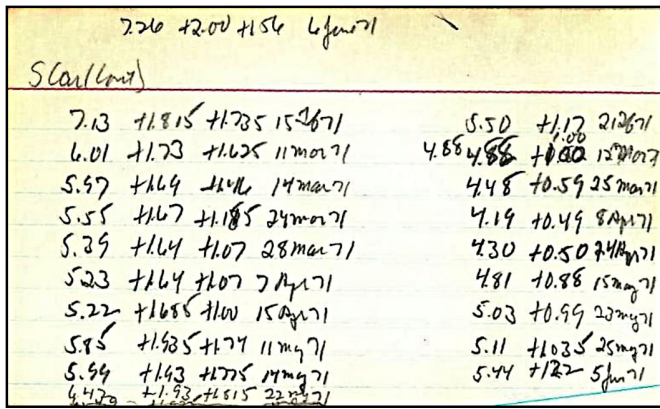 7.26 +2.00 +1.56 6 Jun 71
S Car (Cont)
7.13 +1.815 +1.735 15 Feb 71
6.01 +1.73 +1.625 11 Mar 71
5.97 +1.69 14 Mar 71
5.55 +1.67 +1.185 24 Mar 71
5.39 +1.64 +1.07 28 Mar 71
5.23 +1.64 +1.07 7 Apr 71
5.22 +1.685 +1.00 15 Apr 71
5.85 +1.935 +1.74 11 May 71
5.99 +1.93 +1.775 14 May 71
+1.93 +1.815 22 May 71
5.50 +1.17 21 Feb 71
4.88 +1.00
4.48 +0.59 25 Mar 71
4.19 +0.49 8 Apr 71
4.30 +0.50 24 Apr 71
4.81 +0.88 15 May 71
5.03 +0.99 23 May 71
5.11 +1.035 25 May 71
5.44 +1.22 5 Jun 71